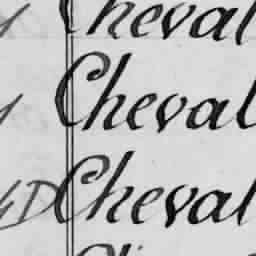 Cheval
Cheval
D Cheval